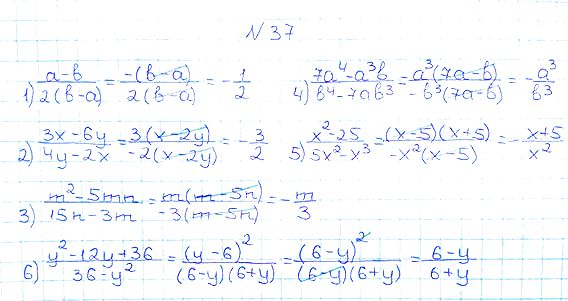 N 37
1) (a-b)/(2(b-a)) = (-(b-a))/(2(b-a)) = -1/2
4) (7a⁴-a³b)/(b⁴-7ab³) = (a³(7a-b))/(-b³(7a-b)) = -a³/b³
2) (3x-6y)/(4y-2x) = (3(x-2y))/(-2(x-2y)) = -3/2
5) (x²-25)/(5x²-x³) = ((x-5)(x+5))/(-x²(x-5)) = -(x+5)/x²
3) (m²-5mn)/(15n-3m) = (m(m-5n))/(-3(m-5n)) = -m/3
6) (y²-12y+36)/(36-y²) = (y-6)²/((6-y)(6+y)) = (6-y)²/((6-y)(6+y)) = (6-y)/(6+y)